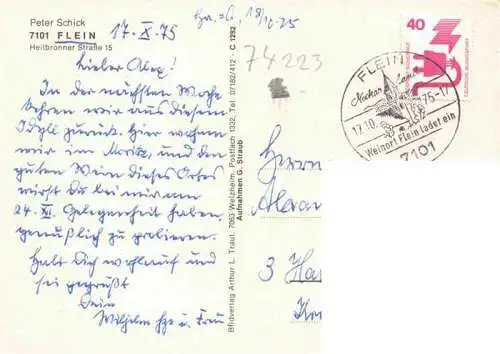 Peter Schick
7101 FLEIN
Heilbronner Straße 15
17.X.75
18/10.75
74223
Lieber Alex!
In der nächsten Woche
kehren wir aus diesem
Idyll zurück. Hier wohnen
wir im Moritz, und den
guten Wein dieses Ortes
wirst Du bei mir am
24.XI. Gelegenheit haben,
genüßlich zu probieren.
Halt Dich wohlauf und
sei gegrüßt
Dein
Wilhelm u. Frau
Bildverlag Arthur L. Traut, 7063 Welzheim, Postfach 1332, Tel. 07182/412 - C 1282
Aufnahmen G. Straub
40
DEUTSCHE BUNDESPOST
FLEIN
17.10.75-17
Weinort Flein ladet ein
7101
Herrn
3